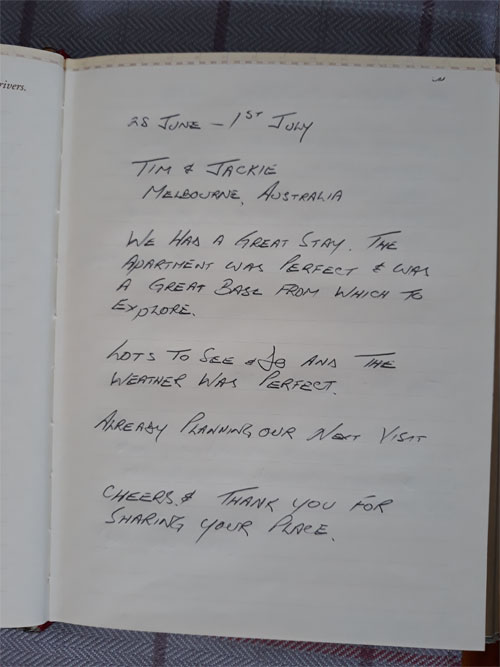 rivers.
28 JUNE - 1ST JULY
TIM & JACKIE
MELBOURNE, AUSTRALIA
WE HAD A GREAT STAY. THE
APARTMENT WAS PERFECT & WAS
A GREAT BASE FROM WHICH TO
EXPLORE.
LOTS TO SEE & DO AND THE
WEATHER WAS PERFECT.
ALREADY PLANNING OUR NEXT VISIT
CHEERS & THANK YOU FOR
SHARING YOUR PLACE.